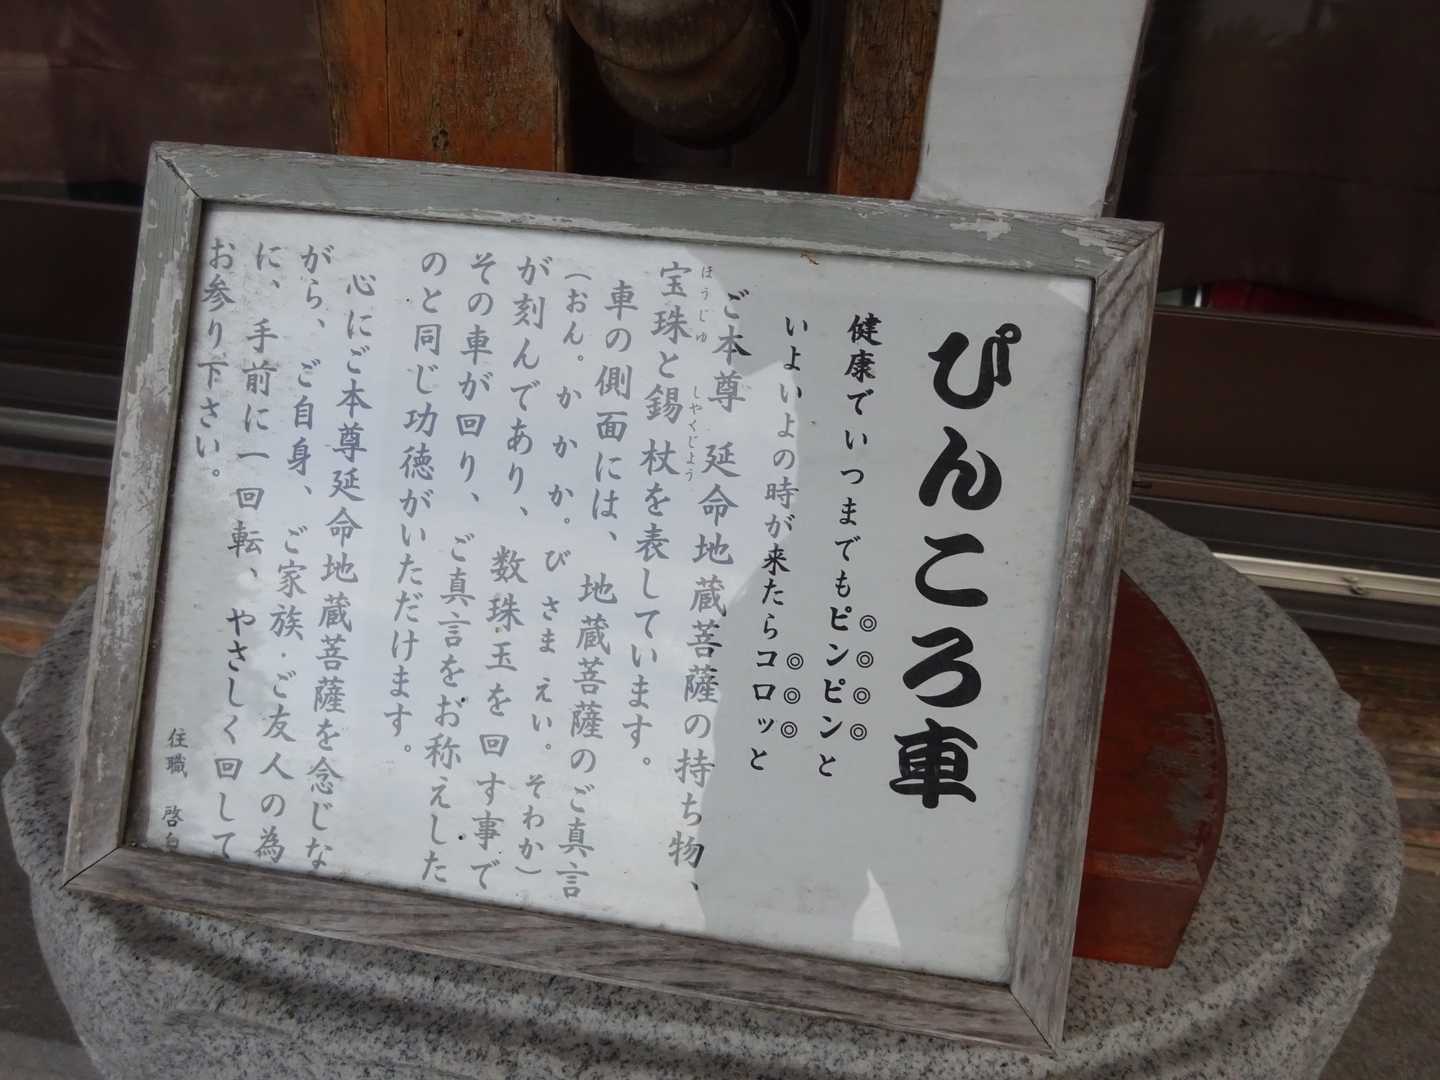 ぴんころ車
健康でいつまでもピンピンと
いよいよの時が来たらコロッと
ご本尊 延命地蔵菩薩の持ち物、
宝珠と錫杖を表しています。
ほうじゆ
しやくじよう
車の側面には、地蔵菩薩のご真言
(おん。かかか。びさまえい。そわか)
が刻んであり、数珠玉を回す事で
その車が回り、ご真言をお称えした
のと同じ功徳がいただけます。
心にご本尊延命地蔵菩薩を念じな
がら、ご自身、ご家族・ご友人の為
に、手前に一回転、やさしく回して
お参り下さい。
住職 啓白